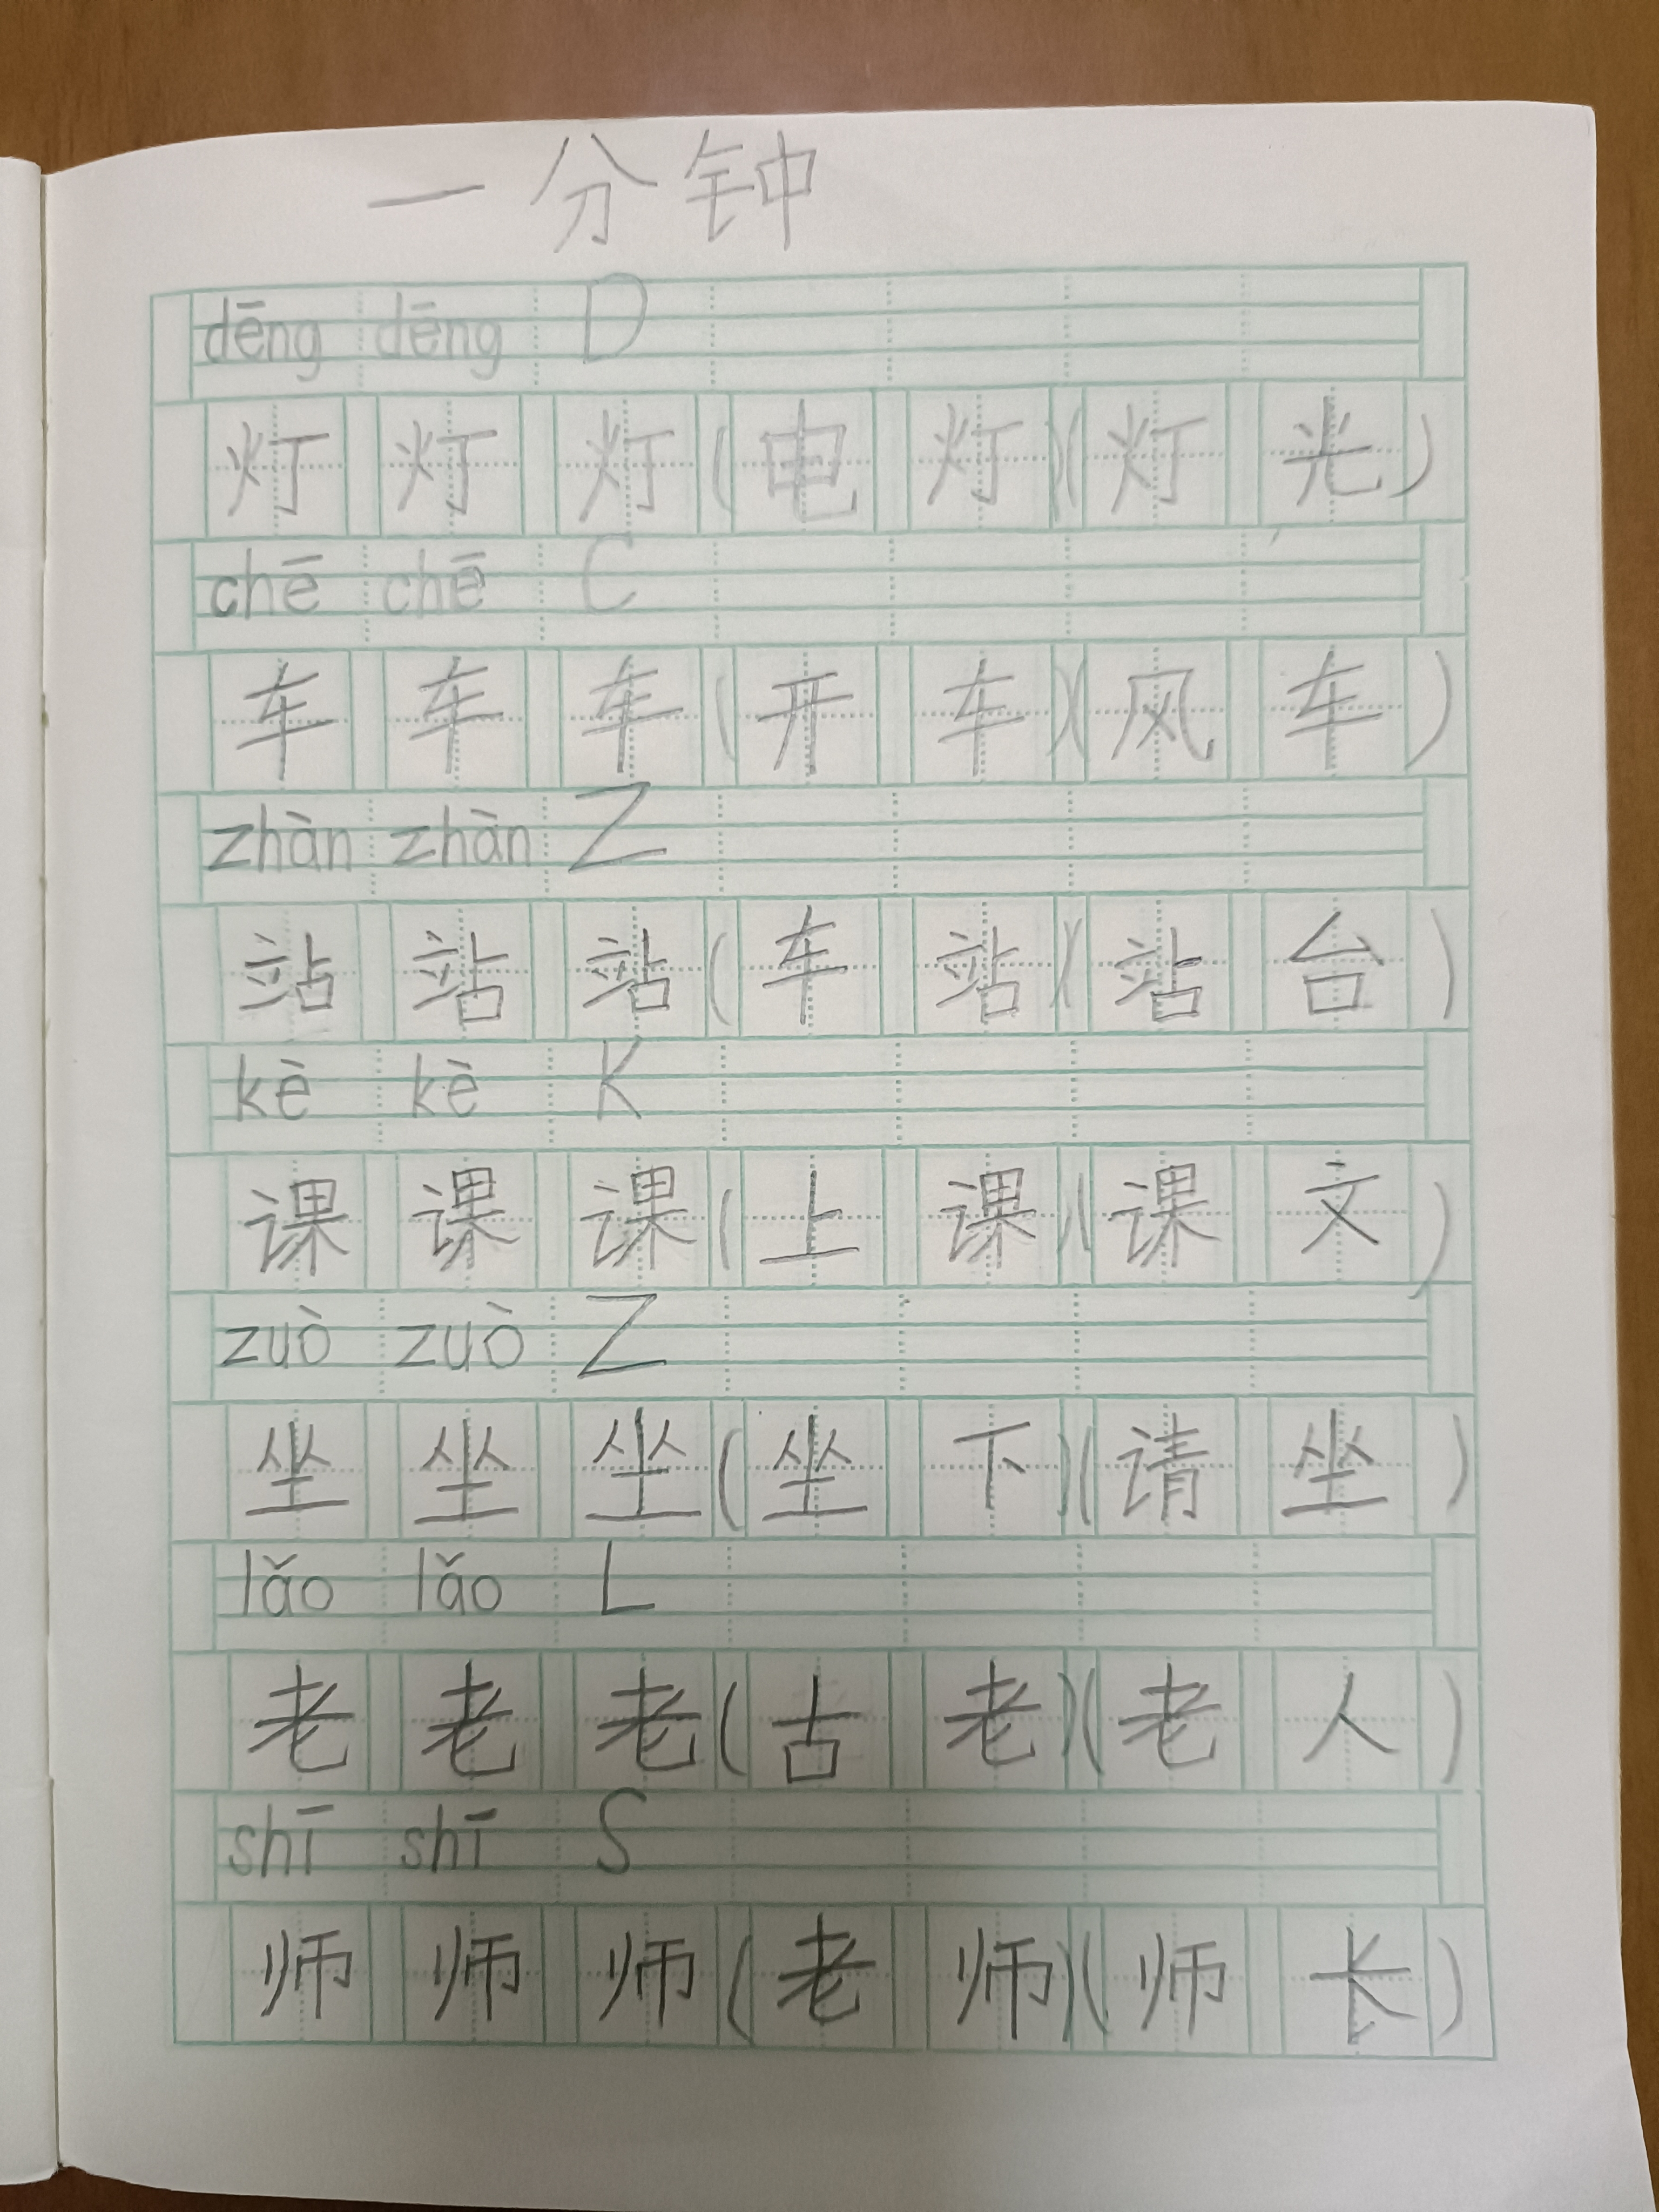 一分钟
dēng dēng D
灯 灯 灯(电 灯)(灯 光)
chē chē C
车 车 车(开 车)(风 车)
zhàn zhàn Z
站 站 站(车 站)(站 台)
kè kè K
课 课 课(上 课)(课 文)
zuò zuò Z
坐 坐 坐(坐 下)(请 坐)
lǎo lǎo L
老 老 老(古 老)(老 人)
shī shī S
师 师 师(老 师)(师 长)